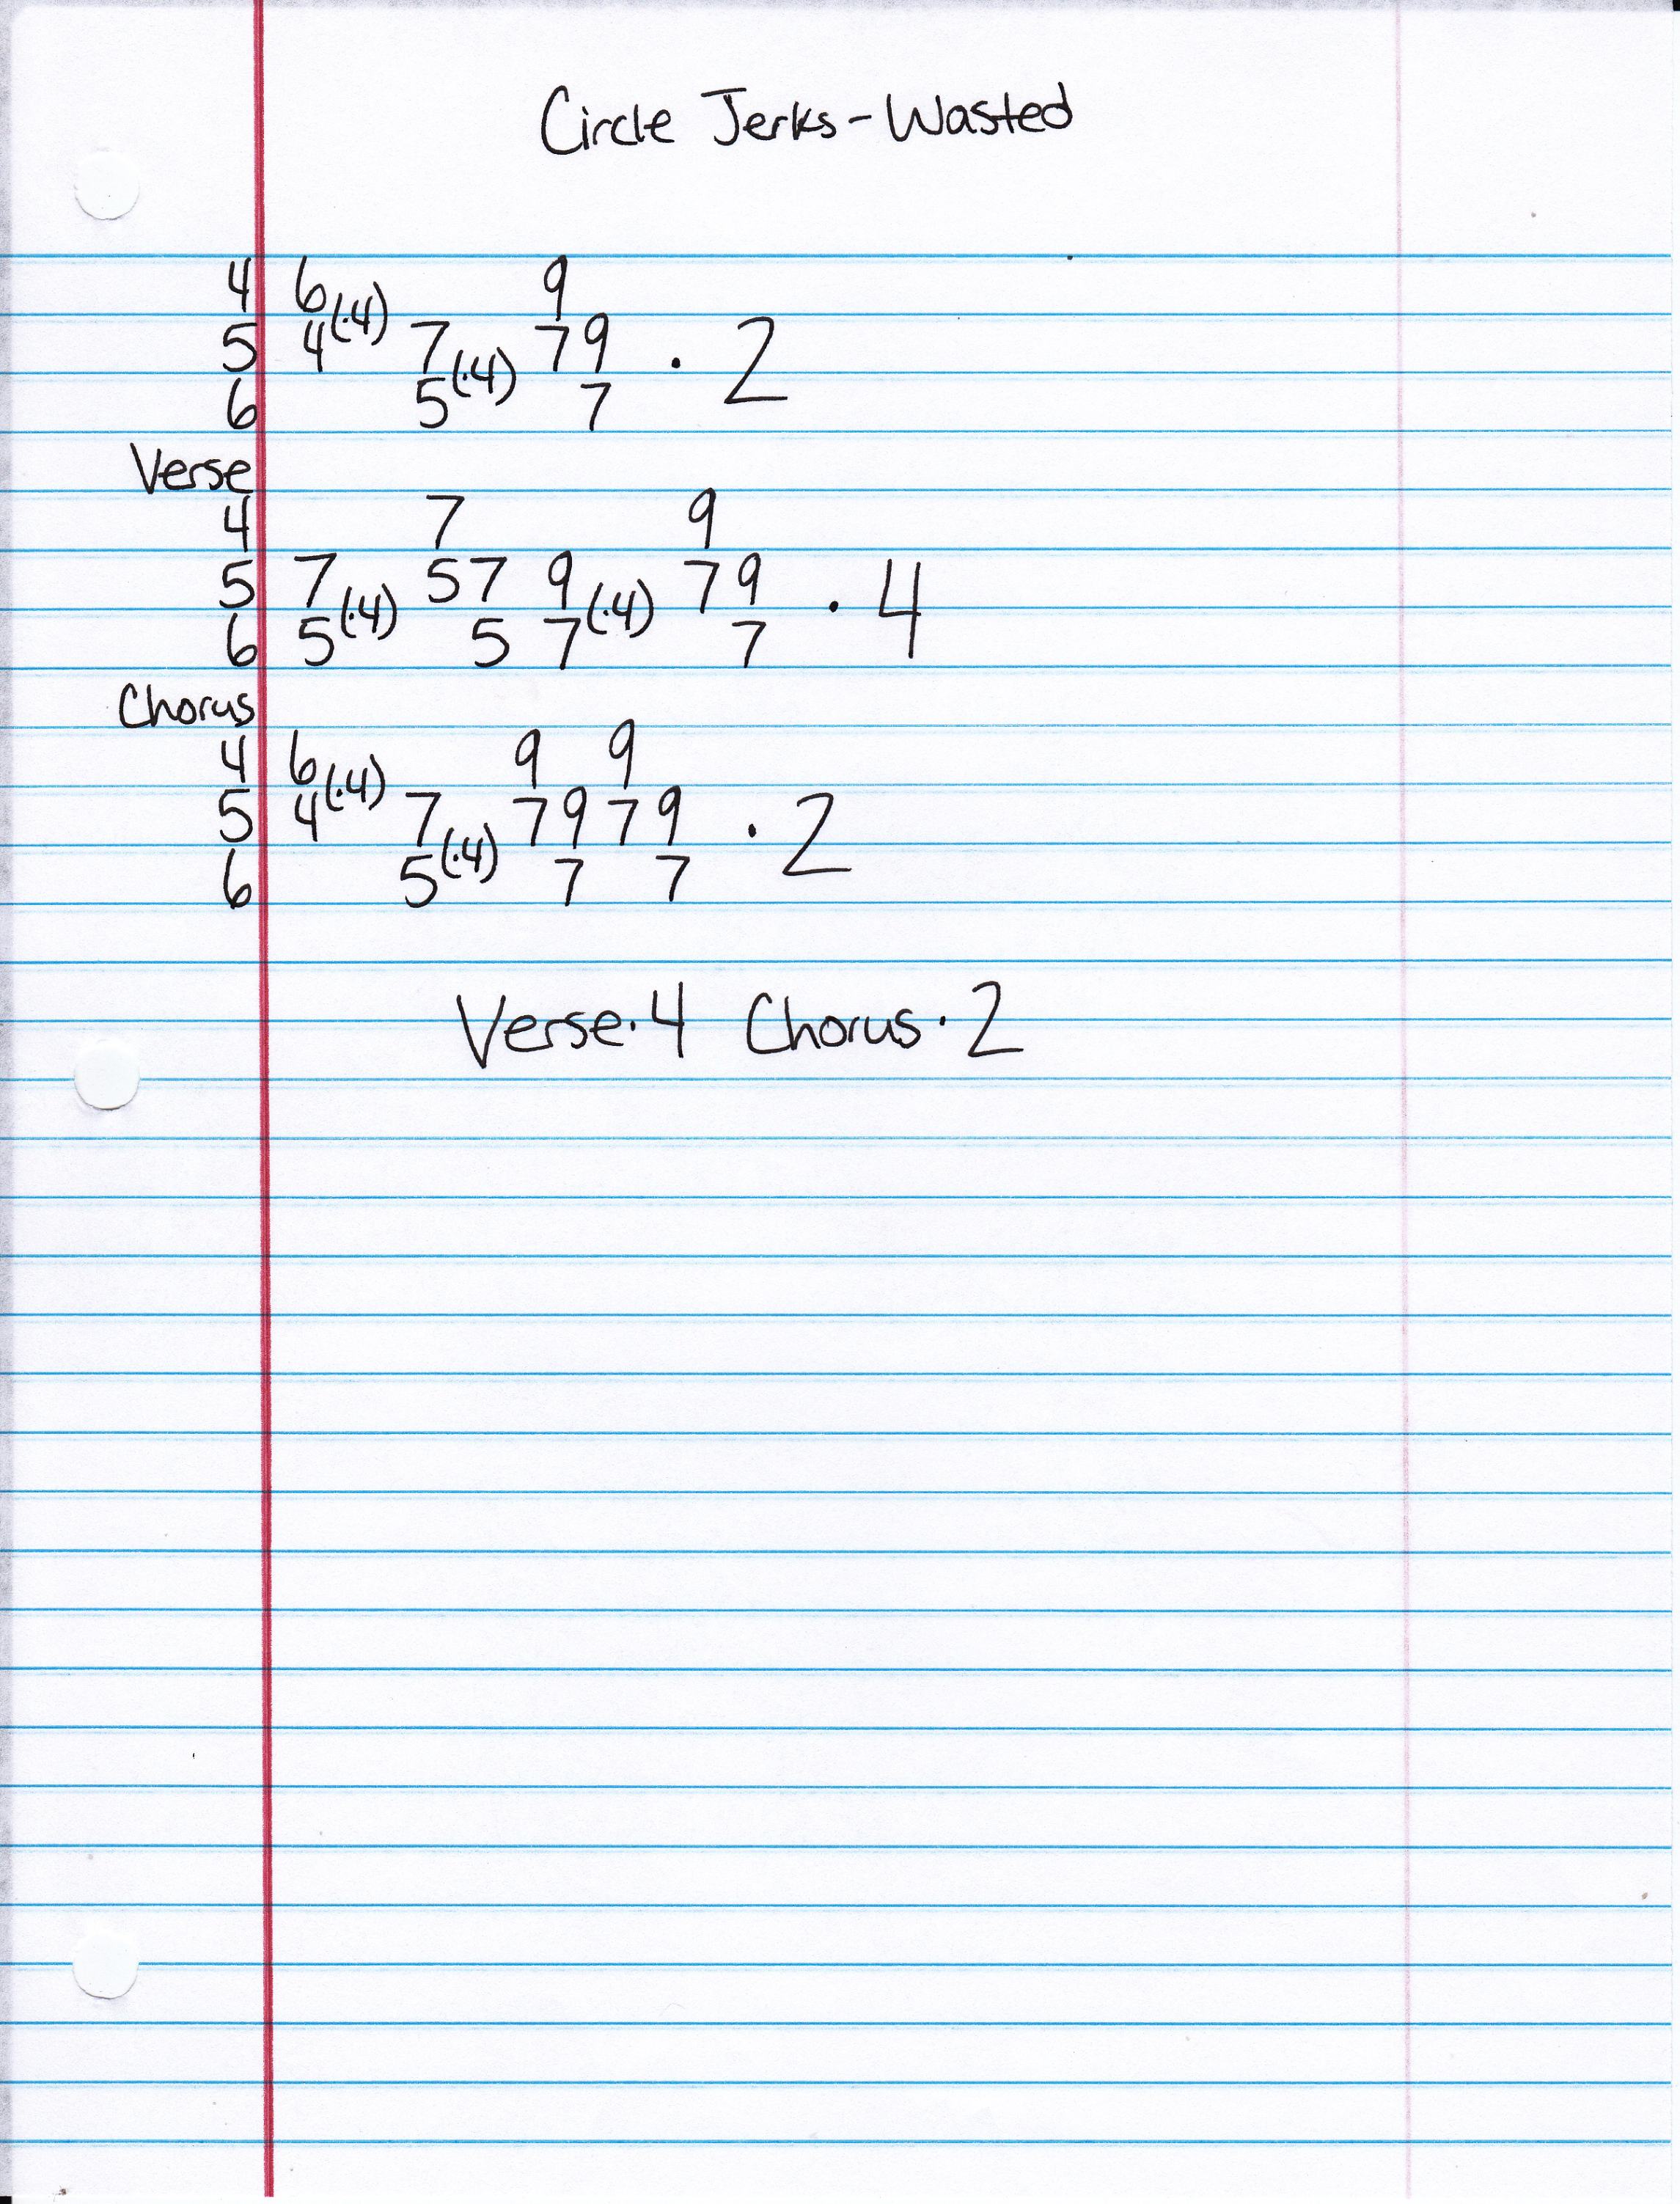 Circle Jerks - Wasted
4 6 (·4) 9
5 4 7 (·4) 7 9 · 2
6 5 7
Verse
4 7 9
5 7 (·4) 5 7 9 (·4) 7 9 · 4
6 5 5 7 7
Chorus
4 6 (·4) 9 9
5 4 7 (·4) 7 9 7 9 · 2
6 5 7 7
Verse·4 Chorus·2